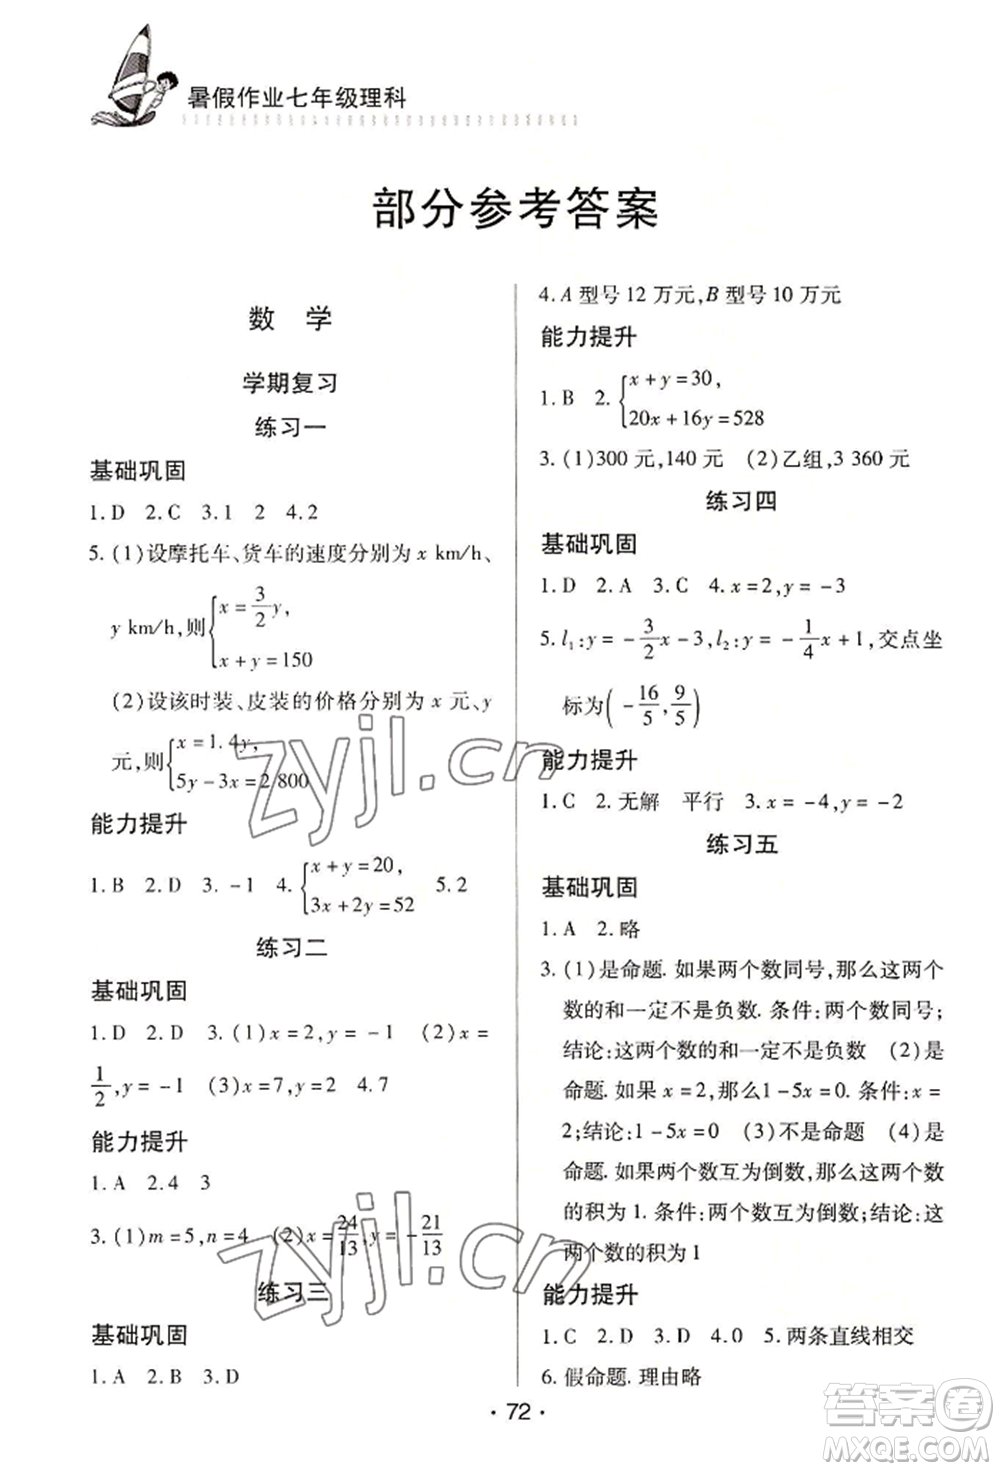 暑假作业七年级理科
部分参考答案
数 学
学期复习
练习一
基础巩固
1.D 2.C 3.1 2 4.2
5.(1)设摩托车、货车的速度分别为 x km/h、
y km/h,则{x=3/2y,
x+y=150
(2)设该时装、皮装的价格分别为 x 元、y
元,则{x=1.4y,
5y-3x=2 800
能力提升
1.B 2.D 3.-1 4.{x+y=20, 5.2
3x+2y=52
练习二
基础巩固
1.D 2.D 3.(1)x=2,y=-1 (2)x=
1/2,y=-1 (3)x=7,y=2 4.7
能力提升
1.A 2.4 3
3.(1)m=5,n=4 (2)x=24/13,y=-21/13
练习三
基础巩固
1.A 2.B 3.D
4.A 型号 12 万元,B 型号 10 万元
能力提升
1.B 2.{x+y=30,
20x+16y=528
3.(1)300 元,140 元 (2)乙组,3 360 元
练习四
基础巩固
1.D 2.A 3.C 4.x=2,y=-3
5.l₁:y=-3/2x-3,l₂:y=-1/4x+1,交点坐
标为(-16/5,9/5)
能力提升
1.C 2.无解 平行 3.x=-4,y=-2
练习五
基础巩固
1.A 2.略
3.(1)是命题.如果两个数同号,那么这两个
数的和一定不是负数.条件:两个数同号;
结论:这两个数的和一定不是负数 (2)是
命题.如果 x=2,那么1-5x=0.条件:x=
2;结论:1-5x=0 (3)不是命题 (4)是
命题.如果两个数互为倒数,那么这两个数
的积为 1.条件:两个数互为倒数;结论:这
两个数的积为 1
能力提升
1.C 2.D 3.D 4.0 5.两条直线相交
6.假命题.理由略
· 72 ·
zyjl.cn
zyjl.cn
答案卷
MXQE.COM